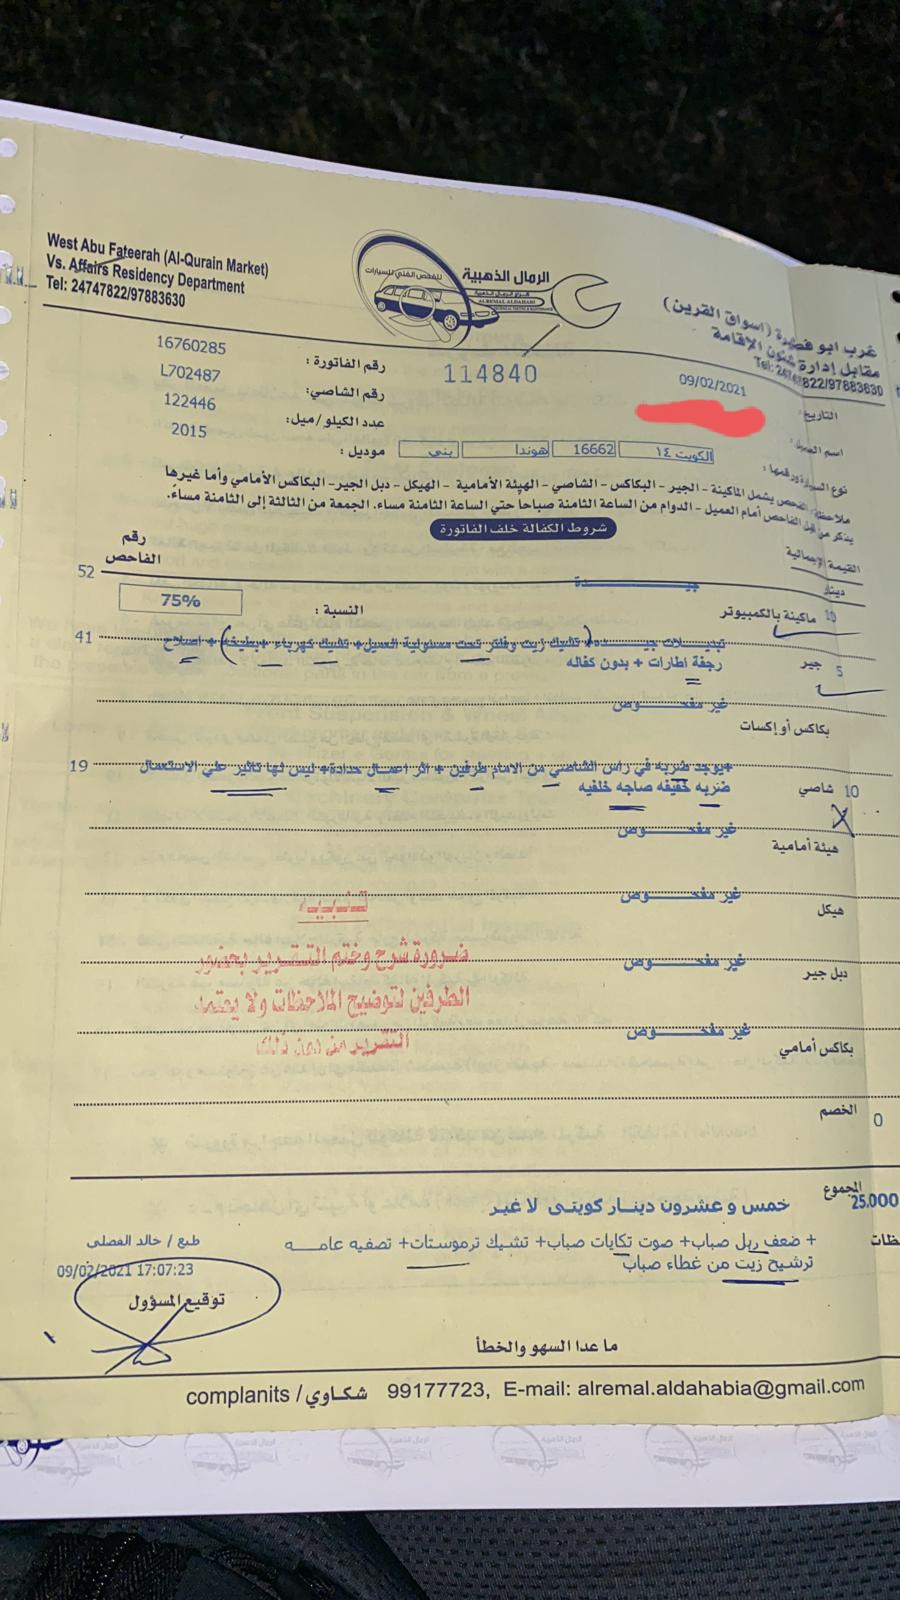 West Abu Fateerah (Al-Qurain Market)
Vs. Affairs Residency Department
Tel: 24747822/97883630
الرمال الذهبية
للفحص الفني للسيارات
ALREMAL ALDAHABI
غرب ابو فطيرة (اسواق القرين)
مقابل إدارة شئون الإقامة
Tel: 24747822/97883630
رقم الفاتورة : 16760285
114840
التاريخ : 09/02/2021
رقم الشاصي: L702487
عدد الكيلو/ميل: 122446
اسم العميل :
موديل : 2015
نوع السيارة ورقمها : الكويت ١٤ 16662 هوندا بني
ملاحظة: الفحص يشمل الماكينة - الجير - البكاكس - الشاصي - الهيئة الأمامية - الهيكل - دبل الجير- البكاكس الأمامي وأما غيرها
يذكر من قبل الفاحص أمام العميل - الدوام من الساعة الثامنة صباحا حتي الساعة الثامنة مساء. الجمعة من الثالثة إلى الثامنة مساءً.
شروط الكفالة خلف الفاتورة
القيمة الإجمالية
دينار
رقم
الفاحص
10 ماكينة بالكمبيوتر جيـــدة 52
النسبة : 75%
5 جير تبديلات جيـــده (تشيك زيت وفلتر تحت مسئولية العميل+ تشيك كهرباء +بطيخه) + اصلاح 41
رجفة اطارات + بدون كفاله
بكاكس أو إكسات غير مفحـــوص
10 شاصي +يوجد ضربه في راس الشاصي من الامام طرفين + اثر اعمـــال حدادة+ ليس لها تاثير علي الاستعمال 19
ضربه خفيفه صاجه خلفيه
هيئة أمامية غير مفحـــوص
هيكل غير مفحـــوص
دبل جير غير مفحـــوص
بكاكس أمامي غير مفحـــوص
تنبيه
ضرورة شرح وختم التقرير بحضور
الطرفين لتوضيح الملاحظات ولا يعتمد
التقرير من دون ذلك
الخصم 0
المجموع 25.000
خمس و عشرون دينـار كويتى لا غير
+ ضعف ربل صباب+ صوت تكايات صباب+ تشيك ترموستات+ تصفيه عامـــه
ترشيح زيت من غطاء صباب
طبع / خالد الفضلى
09/02/2021 17:07:23
توقيع المسؤول
ما عدا السهو والخطأ
complanits / شكاوي 99177723, E-mail: alremal.aldahabia@gmail.com